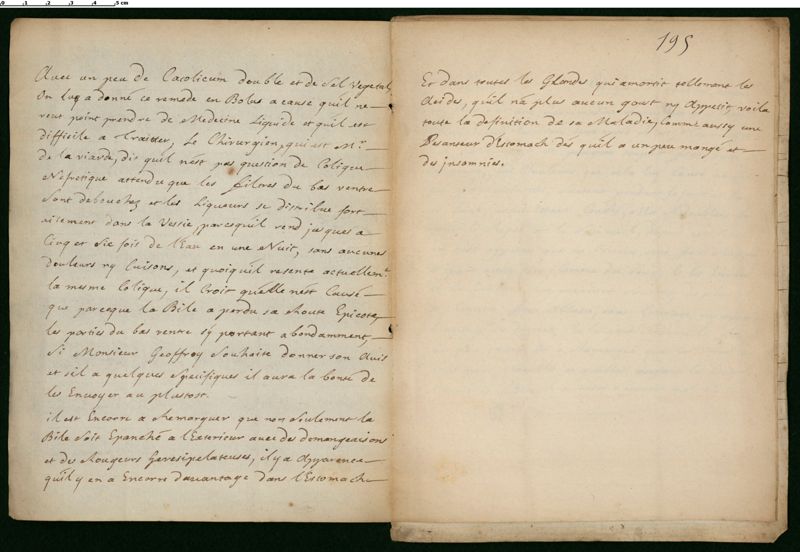 Avec un peu de Cacolicum double et de Sel Vegetal,
On luy a donné ce remede en Bolus a cause qu'il ne
veut point prendre de Medecine Liquide et qu'il est
difficile a Traitter, Le Chirurgien, qui est Mr.
de la viarde, dis qu'il n'est pas question de Colique
Nefretique attendu que les filtres du bas ventre
Sont debouchez et les Liqueurs se distribue fort
aisement dans la Vessie, parcequ'il rend jusques a
Cinq et Six fois de l'Eau en une Nuit, sans aucunes
douleurs ny Cuisons, et quoiqu'il resente actuellemt.
la mesme Colique, il Croit qu'elle n'est Causé
que parceque la Bile a perdu sa Route
les parties du bas ventre s'y portant abondamment,
Si Monsieur Geoffroy Souhaite donner son Avis
et s'il a quelques Specifiques il aura la bonté de
les Envoyer au plustost.
il est Encorre a Remarquer que non Seulement la
Bile Soit Epanché a l'Exterieur avec des demangeaisons
et des Rougeurs Heresipelateuses, il y a Apparence
qu'il y en a Encorre davantage dans l'Estomach
195
Et dans toutes les Glandes qui amortit tellement les
Acides, qu'il n'a plus aucun goust ny Appetit, voila
toute la definition de sa Maladie, Comme aussy une
Pesanteur d'Estomach dés qu'il a un peu mangé et
des insomnies.
0 1 2 3 4 5 cm